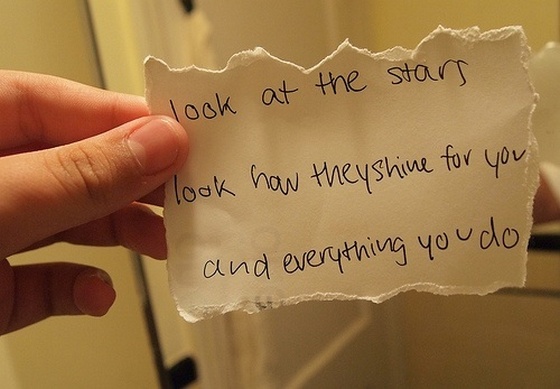 look at the stars
look how they shine for you
and everything you do